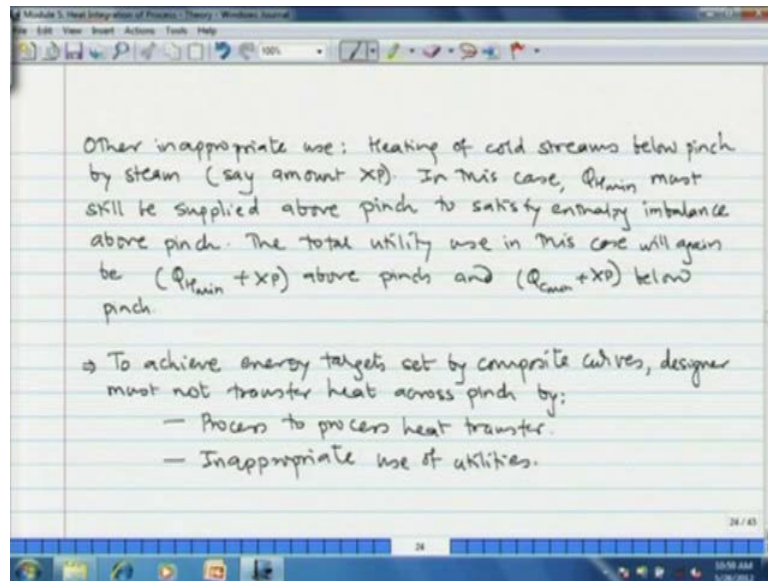 Module 5. Heat Integration of Process - Theory - Windows Journal
File Edit View Insert Actions Tools Help
100%
Other inappropriate use: Heating of cold streams below pinch
by steam (say amount XP). In this case, QHmin must
still be supplied above pinch to satisfy enthalpy imbalance
above pinch. The total utility use in this case will again
be (QHmin + XP) above pinch and (QCmin + XP) below
pinch.
⇒ To achieve energy targets set by composite curves, designer
must not transfer heat across pinch by:
— Process to process heat transfer.
— Inappropriate use of utilities.
24 / 43
24
10:59 AM